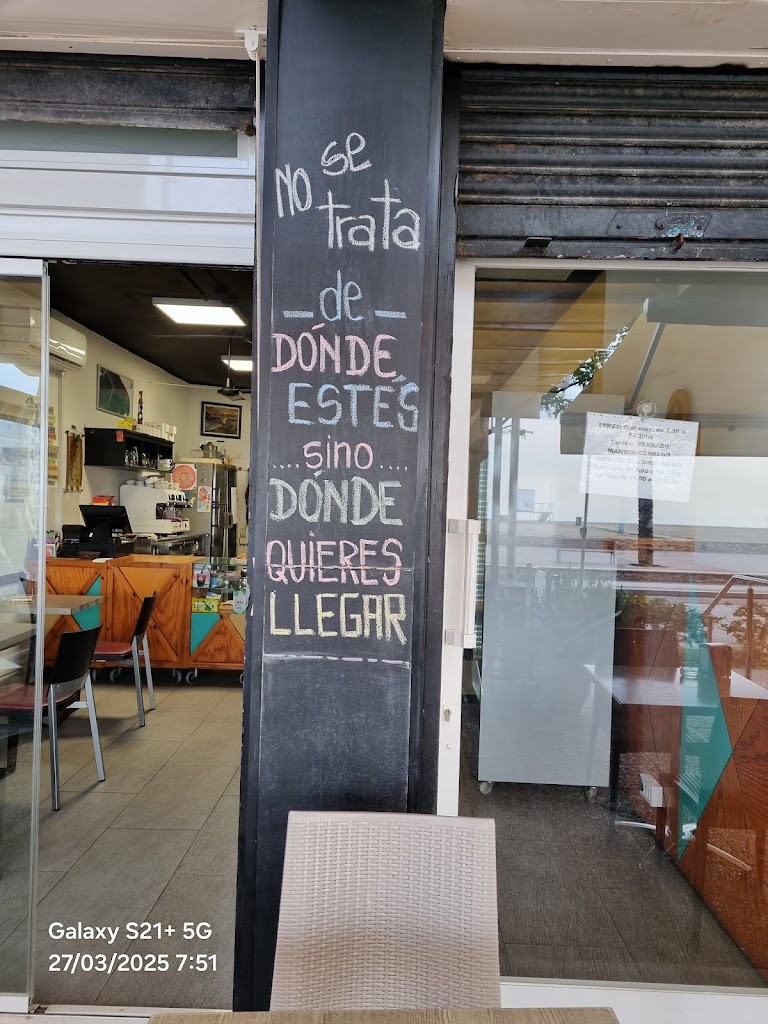 No se
trata
de
DÓNDE
ESTÉS
.... sino ....
DÓNDE
QUIERES
LLEGAR
MARTES: CERRADO
Galaxy S21+ 5G
27/03/2025 7:51